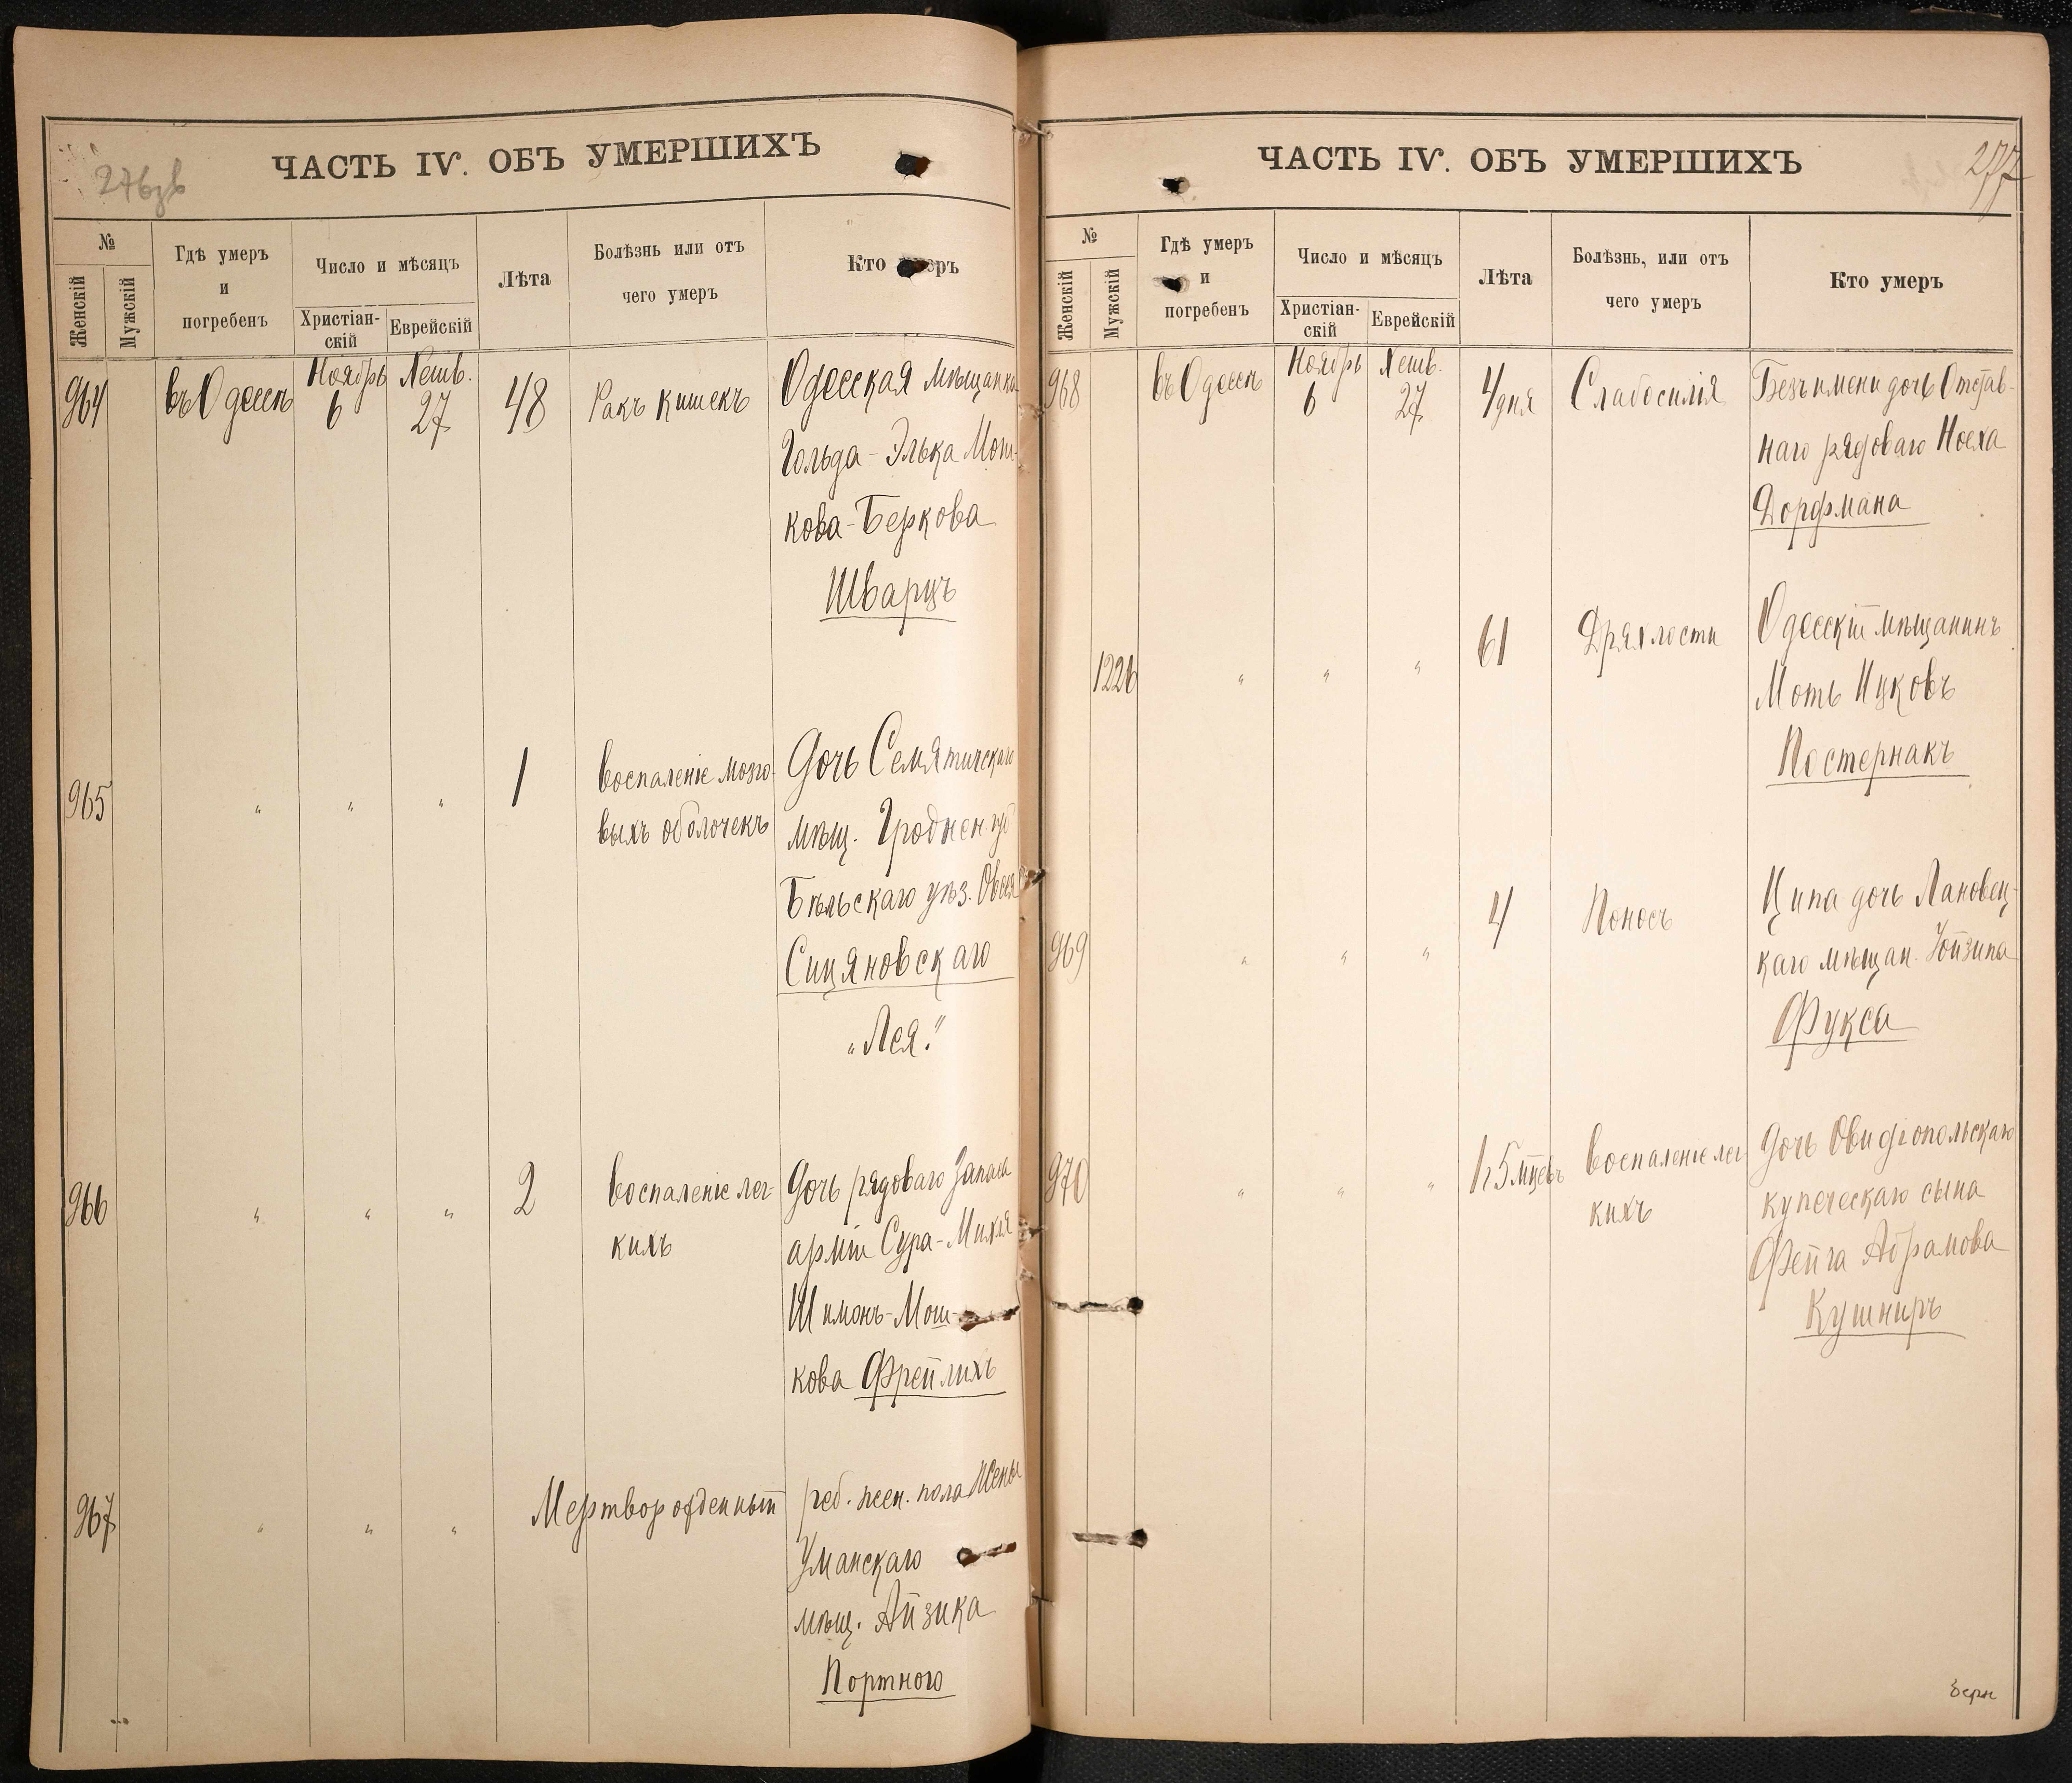 276зв
ЧАСТЬ IV. ОБЪ УМЕРШИХЪ
№
Женскій
Мужскій
Гдѣ умеръ
и
погребенъ
Число и мѣсяцъ
Христіан-
скій
Еврейскій
Лѣта
Болѣзнь или отъ
чего умеръ
Кто
964
въ Одессѣ
Ноябрь
6
Хешв.
27
48
Ракъ кишекъ
Одесская мѣщанка
Гольда-Элька Мош-
кова-Беркова
Шварцъ
965
"
"
"
1
Воспаленіе мозго-
выхъ оболочекъ
Дочь Семятичскаго
мѣщ. Гроднен. губ
Бѣльскаго уѣз. Овсея
Сицяновскаго
„Лея."
966
"
"
"
2
Воспаленіе лег-
кихъ
Дочь рядоваго Запаса
арміи Сура-Михля
Шимонъ-Мош-
кова Фрейлихъ
967
"
"
"
Мертворожденный
реб. жен. пола Жены
Уманскаго
мѣщ. Айзика
Портного
277
ЧАСТЬ IV. ОБЪ УМЕРШИХЪ
№
Женскій
Мужскій
Гдѣ умеръ
и
погребенъ
Число и мѣсяцъ
Христіан-
скій
Еврейскій
Лѣта
Болѣзнь, или отъ
чего умеръ
Кто умеръ
968
въ Одессѣ
Ноябрь
6
Хешв.
27
4 дня
Слабосилія
Безъ имени дочь Отстав-
наго рядоваго Ноеха
Дорфмана
1226
"
"
"
61
Дряхлости
Одесскій мѣщанинъ
Моть Ицковъ
Постернакъ
969
"
"
"
4
Поносъ
Ципа дочь Лановец-
каго мѣщан.
Фукса
970
"
"
"
1 г 5 мцевъ
Воспаленіе лег-
кихъ
Дочь Овидіопольскаго
купеческаго сына
Фейга Абрамова
Кушниръ